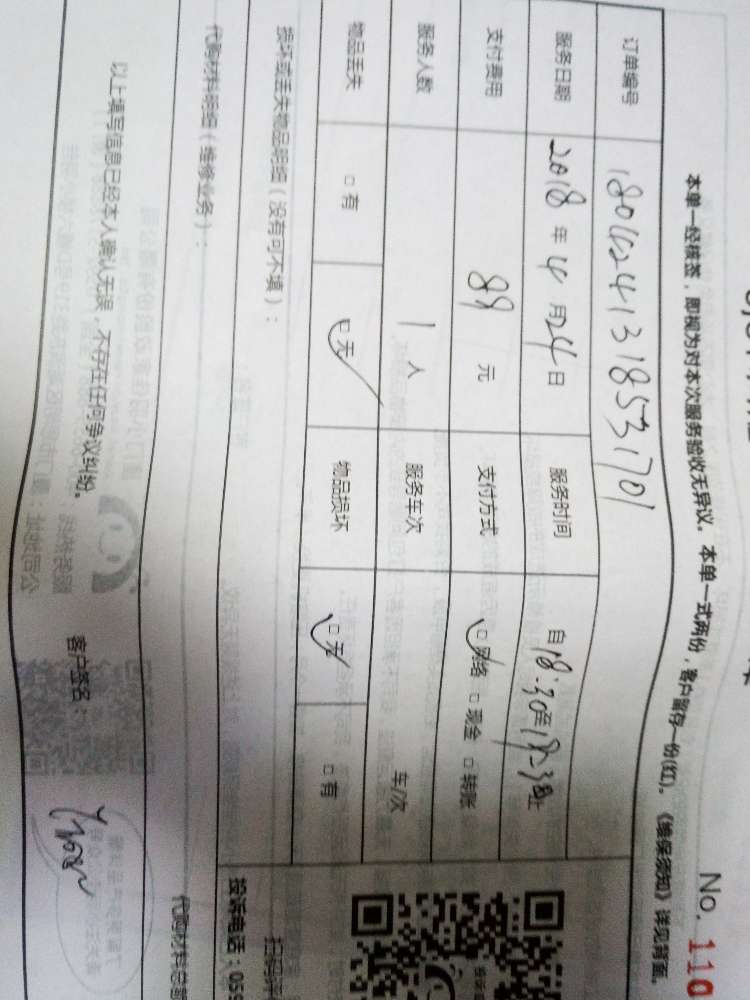 No. 110
本单一经核签，即视为对本次服务验收无异议。本单一式两份，客户留存一份(红)。《维保须知》详见背面。
订单编号 1804241318531701
服务日期 2018 年 4 月 24 日 服务时间 自 18:30至19:30止
支付费用 89 元 支付方式 □ 网络 □ 现金 □ 转账
服务人数 1 人 服务车次 车/次
物品丢失 □ 有 □ 无 物品损坏 □ 无 □ 有
损坏或丢失物品明细（没有可不填）：
代购材料明细（维修业务）：
代购材料总额
投诉电话：059
以上填写信息已经本人确认无误，不存在任何争议纠纷。
客户签名：